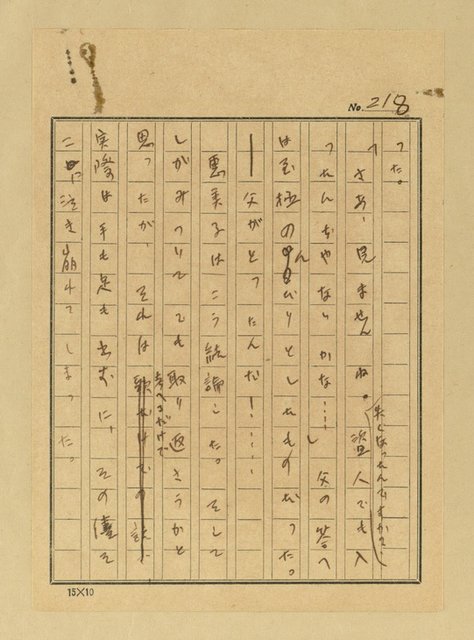 No. 218
った。
「さあ、見ませんね。盗人でも入
失くなったんですか
つたんぢやないかな……」父の答へ
は至極のんびりとしたものだつた。
――父がとつたんだ！……
恵美子はこう結論した。そして
しがみついてでも取り返さうかと
思つたが、それは
考へるだけで
実際は手も足も出ずに、その儘そ
こに泣き崩れてしまつた。
15×10